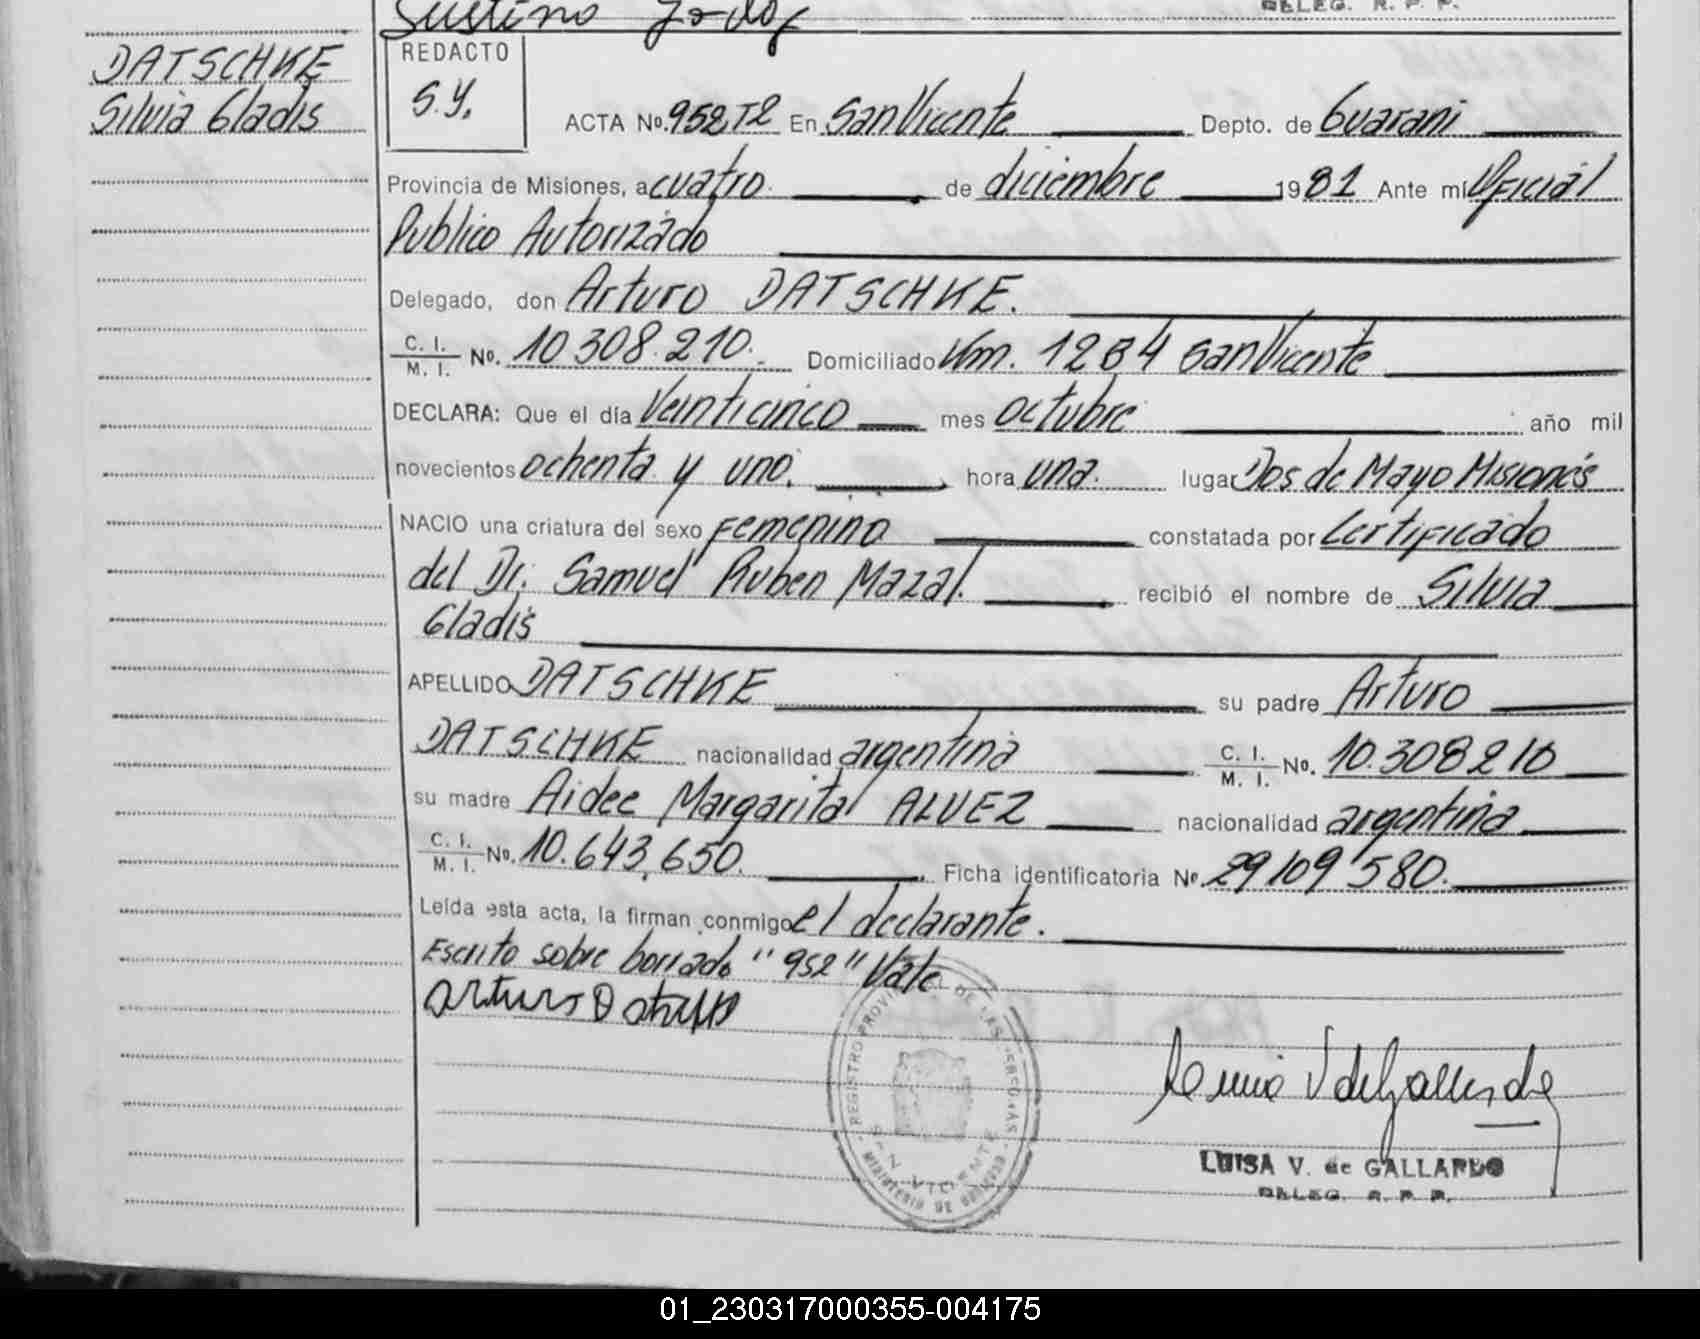 DELEG. R. P. P.
DATSCHKE
Silvia Gladis
REDACTO
S.Y.
ACTA No. 952 T2 En San Vicente Depto. de Guarani
Provincia de Misiones, a cuatro de diciembre 1981 Ante mí Oficial
Publico Autorizado
Delegado, don Arturo DATSCHKE.
C. I. / M. I. No. 10 308.210. Domiciliado Km. 1284 San Vicente
DECLARA: Que el día Veinticinco mes octubre año mil
novecientos ochenta y uno. hora una. lugar Dos de Mayo Misiones
NACIO una criatura del sexo Femenino constatada por Certificado
del Dr. Samuel Ruben Mazal. recibió el nombre de Silvia
Gladis
APELLIDO DATSCHKE su padre Arturo
DATSCHKE nacionalidad argentina C. I. / M. I. No. 10.308210
su madre Aidee Margarita ALVEZ nacionalidad argentina
C. I. / M. I. No. 10.643,650. Ficha identificatoria No 29109580.
Leída esta acta, la firman conmigo el declarante.
Escrito sobre borrado "952" Vale
arturo Datschke
REGISTRO PROVINCIAL DE LAS PERSONAS
SAN VICENTE
MINISTERIO DE GOBIERNO
LUISA V. de GALLARDO
DELEG. R. P. P.
01_230317000355-004175